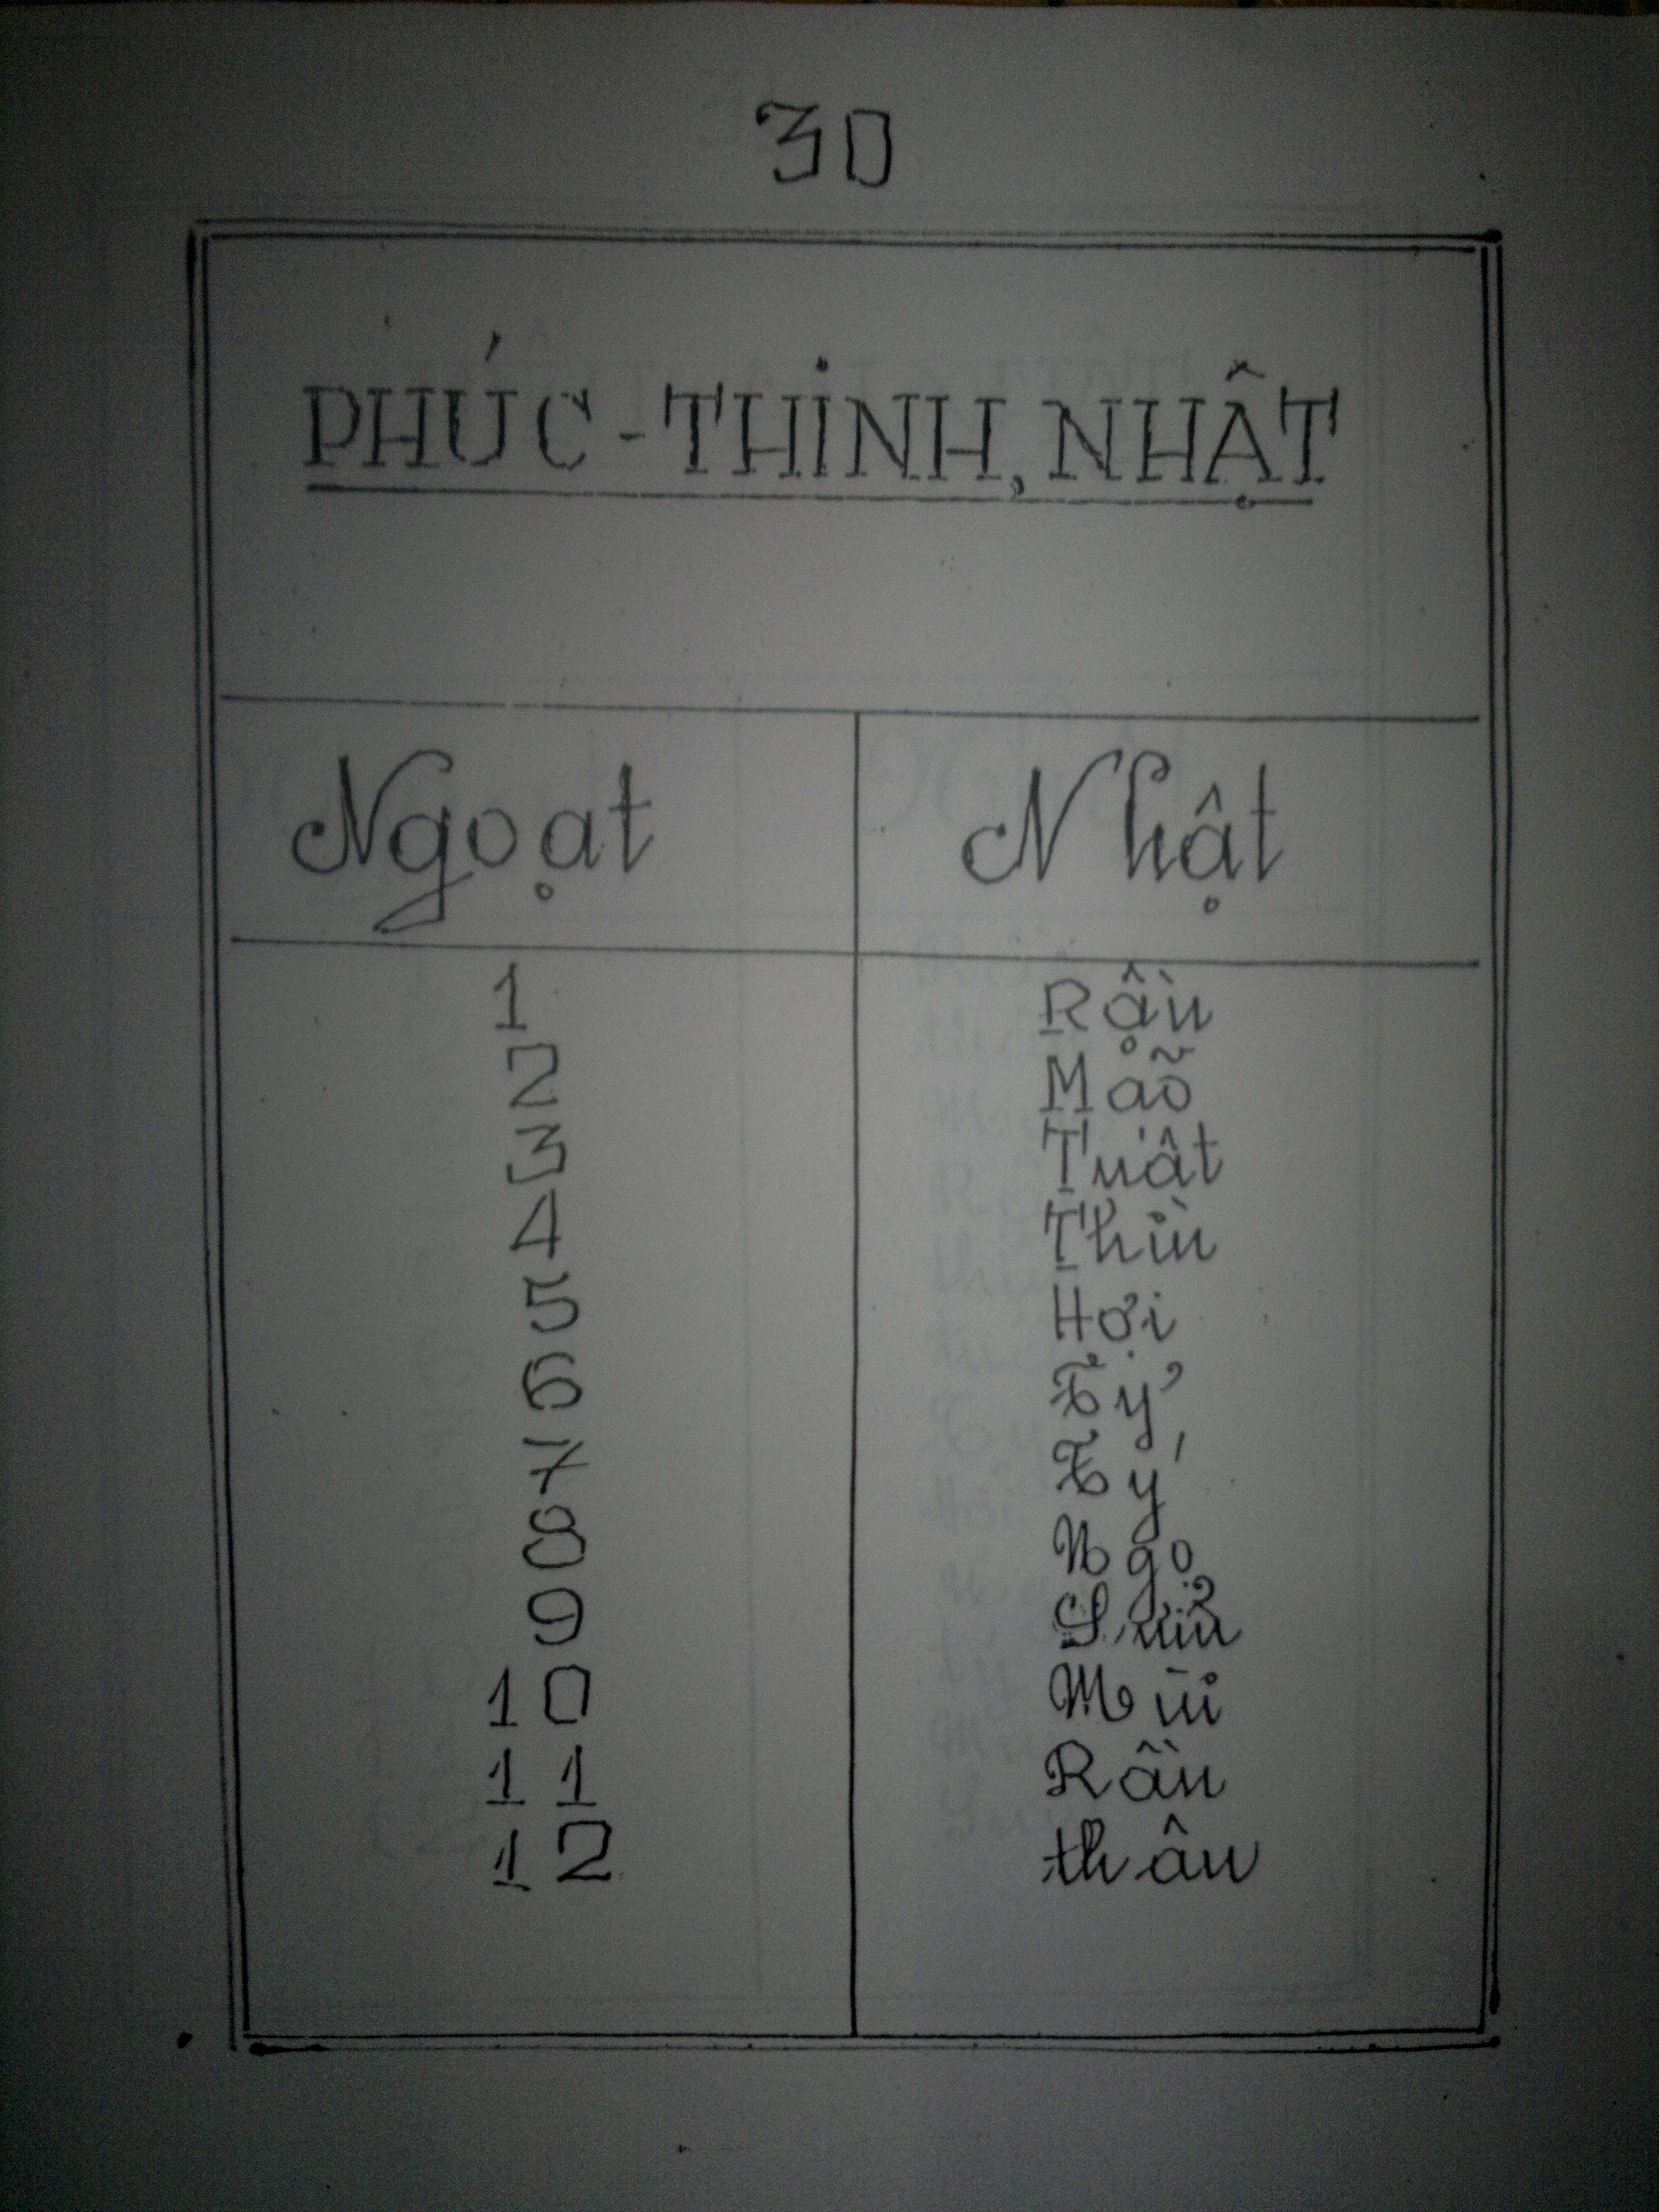 30
PHÚC - THINH, NHẬT
Ngoạt Nhật
1 Rậu
2 Maõ
3 Tuât
4 Thìn
5 Hợi
6 Tý
7 Tý
8 Ngọ
9 Sửu
10 Mùi
11 Rần
12 thân